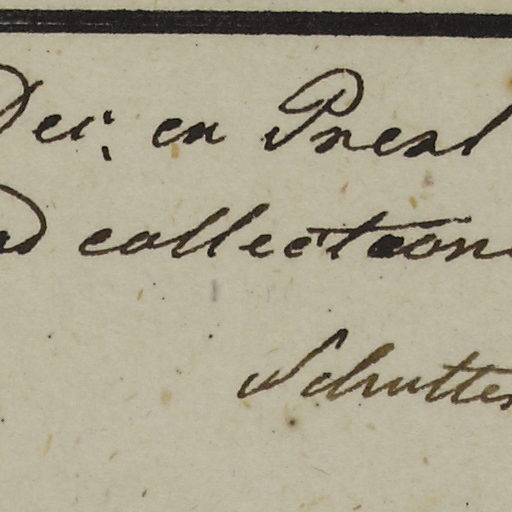 Dec; en Preal
ad collectione
Schutter